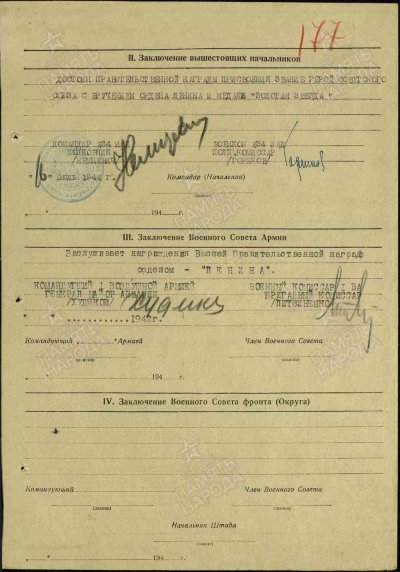 177
II. Заключение вышестоящих начальников
ДОСТОИН ПРАВИТЕЛЬСТВЕННОЙ НАГРАДЫ ПРИСВОЕНИЯ ЗВАНИЕ ГЕРОЙ СОВЕТСКОГО
СОЮЗА С ВРУЧЕНИЕМ ОРДЕНА ЛЕНИНА И МЕДАЛЬ "ЗОЛОТАЯ ЗВЕЗДА".
КОМАНДИР 234 ИАД ВОЕНКОМ 234 ИАД
ПОЛКОВНИК ПОЛК.КОМИССАР
1942 г. Командир (Начальник)
(подпись)
194 г.
III. Заключение Военного Совета Армии
Заслуживает награждения Высшей Правительственной наград
орденом - "ЛЕНИНА".
КОМАНДУЮЩИЙ I ВОЗДУШНОЙ АРМИЕЙ ВОЕННЫЙ КОМИССАР I ВА
ГЕНЕРАЛ МАЙОР АВИАЦИИ БРИГАДНЫЙ КОМИССАР
/ХУДЯКОВ/ /ЛИТВИНЕНКО/
1942г.
Командующий Армией Член Военного Совета
(подпись) (подпись)
194 г.
IV. Заключение Военного Совета фронта (Округа)
Командующий Член Военного Совета
(подпись) (подпись)
Начальник Штаба
(подпись)
194 г.
ПАМЯТЬ НАРОДА